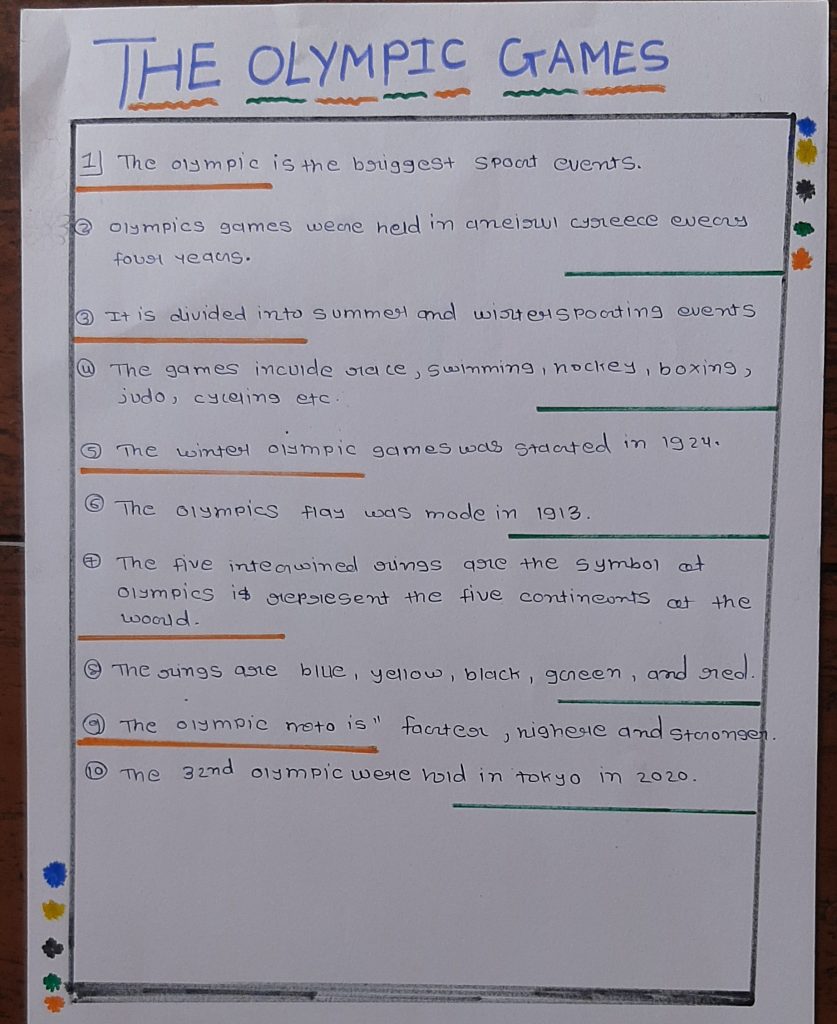 THE OLYMPIC GAMES
1 The olympic is the briggest sport events.
② olympics games were held in aneirul cyreece every
four years.
③ It is divided into summer and winter sporting events
④ The games inculde race, swimming, hockey, boxing,
judo, cyceling etc.
⑤ The winter olympic games was started in 1924.
⑥ The olympics flay was made in 1913.
⑦ The five interwined rings are the symbol of
olympics is represent the five continents of the
world.
⑧ The rings are blue, yellow, black, green, and red.
⑨ The olympic moto is" faster, highere and stronger.
⑩ The 32nd olympic were hold in tokyo in 2020.